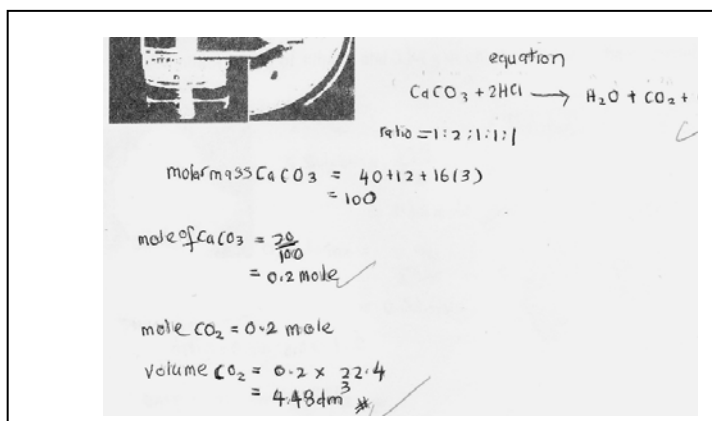 equation
CaCO3 + 2HCl ⟶ H2O + CO2 +
ratio = 1:2:1:1:1
molar mass CaCO3 = 40+12+16(3)
= 100
mole of CaCO3 = 20/100
= 0.2 mole
mole CO2 = 0.2 mole
volume CO2 = 0.2 x 22.4
= 4.48dm3 #